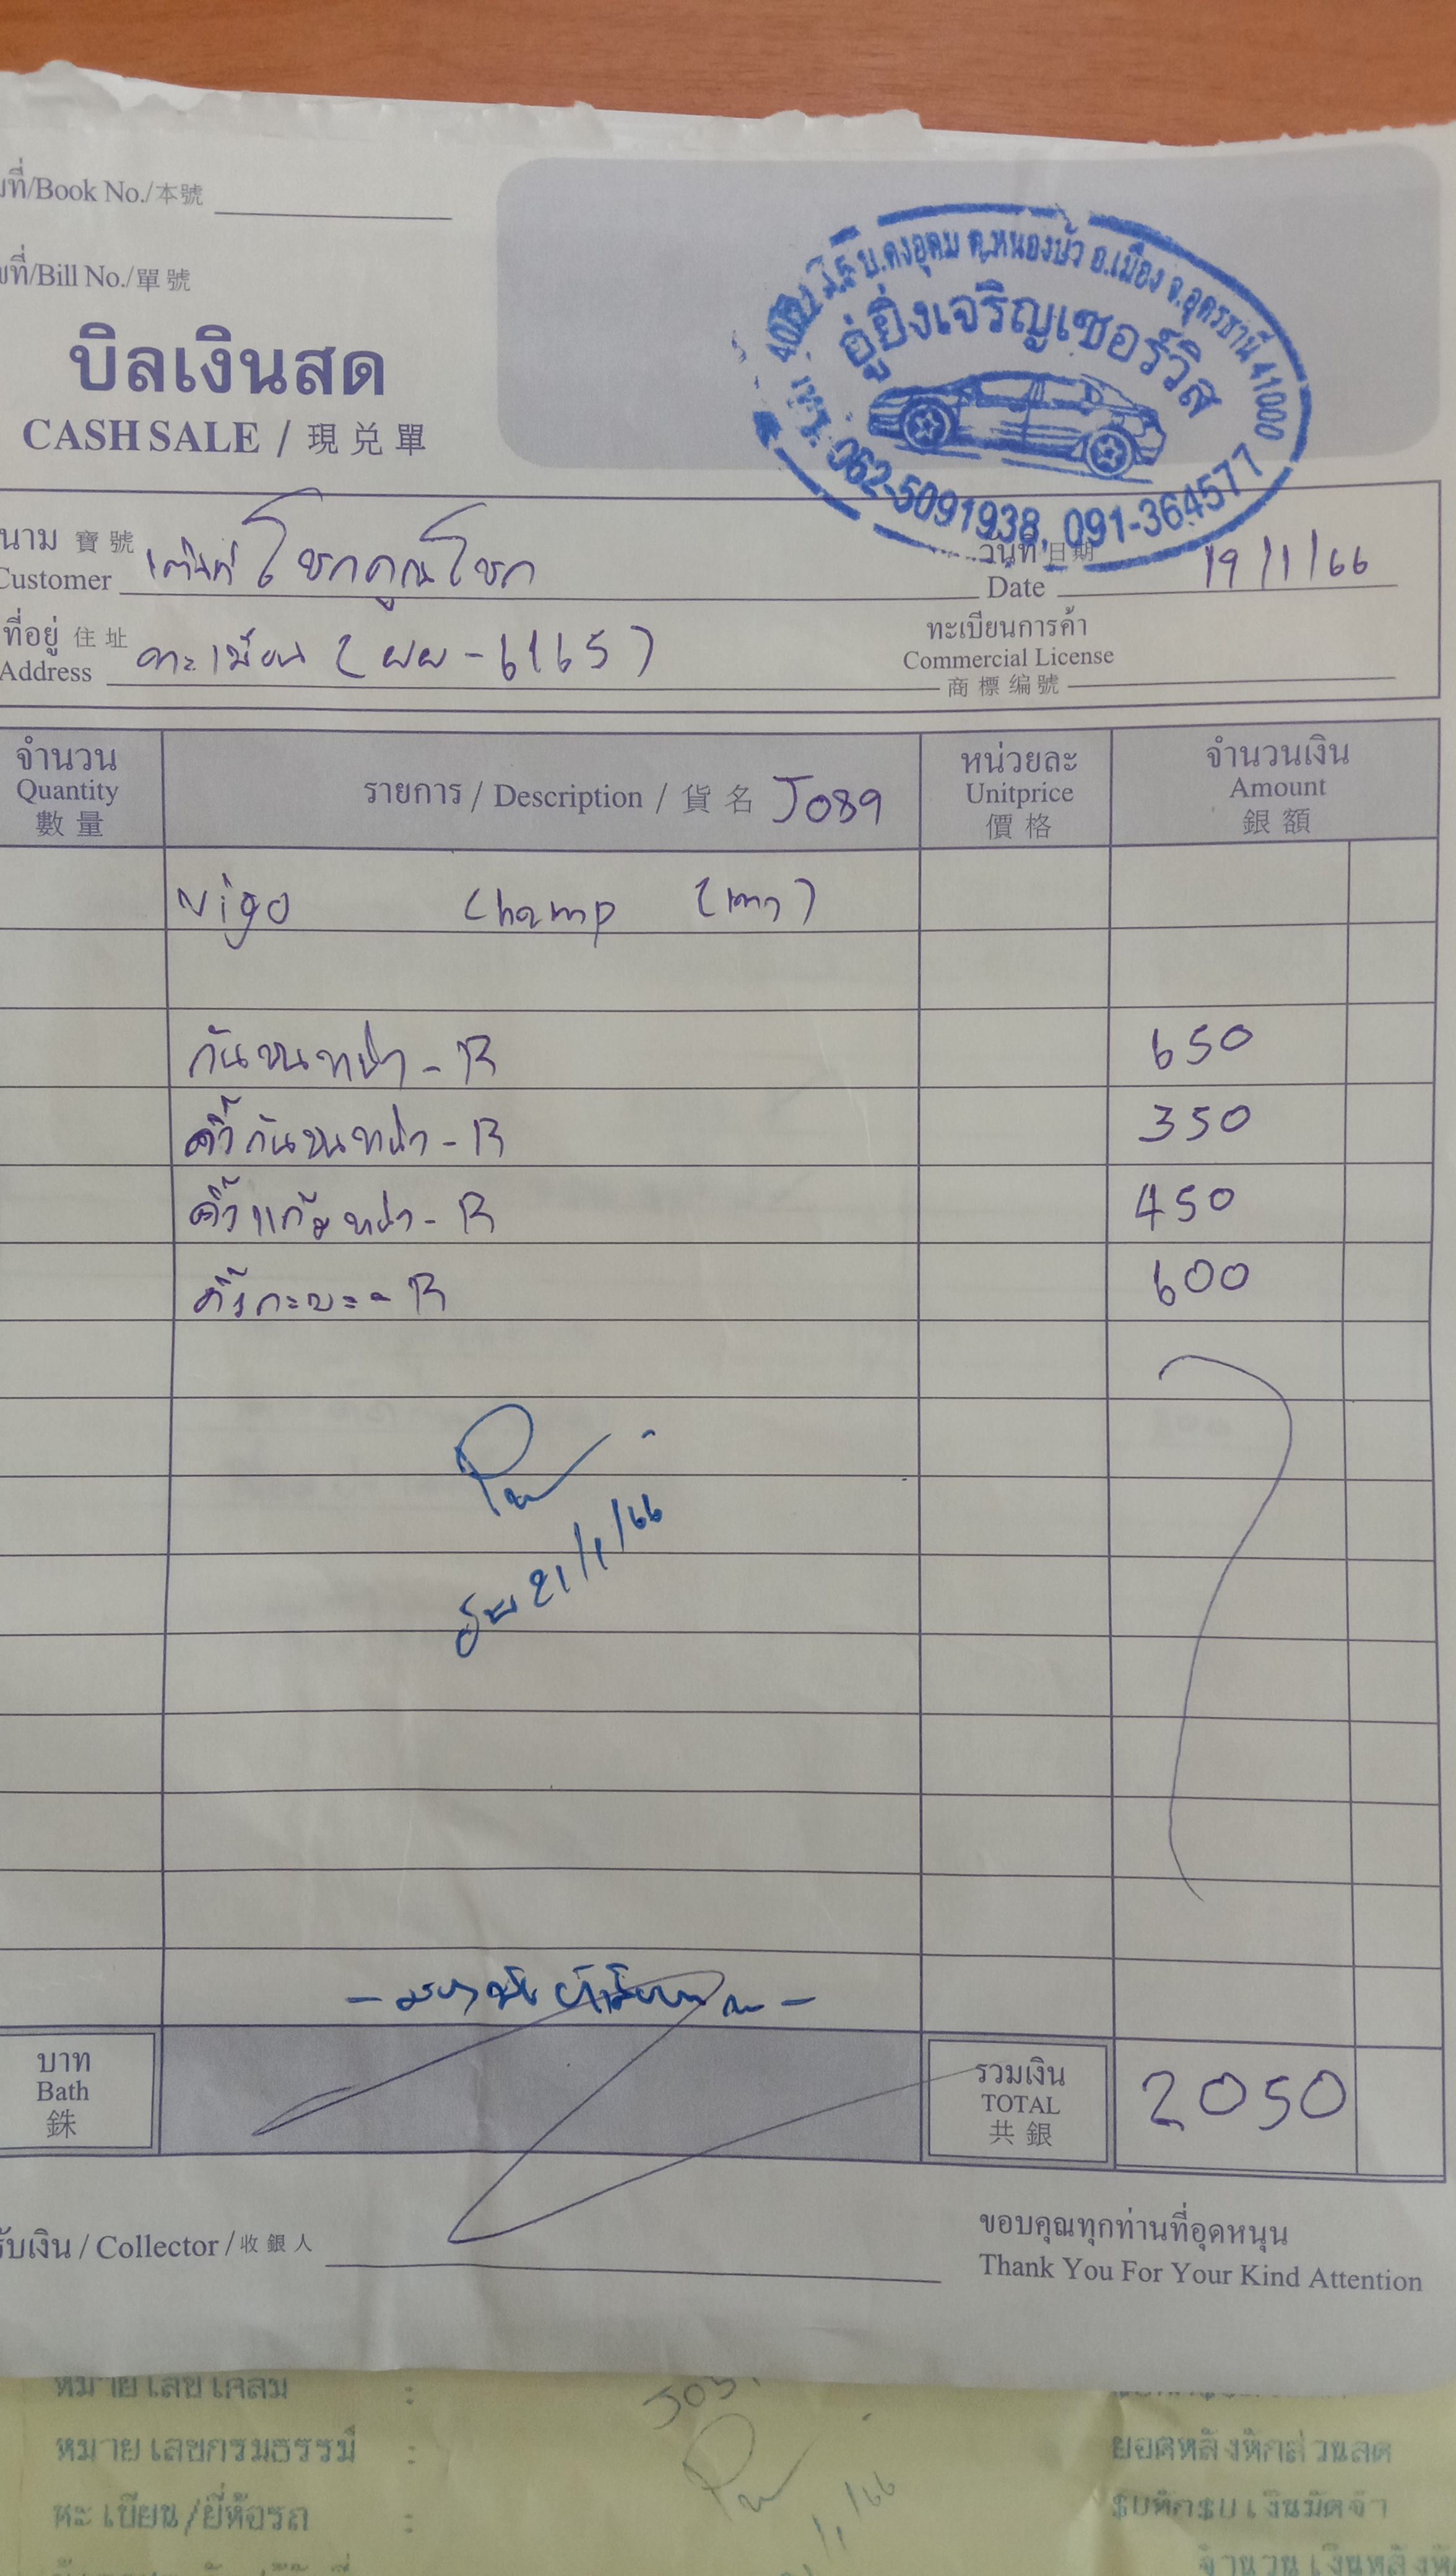 ที่/Book No./本號
ที่/Bill No./單號
บิลเงินสด
CASH SALE / 現兑單
ม.5 บ.ดงอุดม ต.หนองบัว อ.เมือง จ.อุดรธานี 41000
อู่ยิ่งเจริญเซอร์วิส
โทร. 062-5091938, 091-364577
นาม 寶號
Customer เต็นท์ โชคคูณโชค
วันที่ 日期
Date 19/1/66
ที่อยู่ 住址
Address ทะเบียน (ผผ-6165)
ทะเบียนการค้า
Commercial License
商標编號
จำนวน
Quantity
數量
รายการ / Description / 貨名 J089
หน่วยละ
Unitprice
價格
จำนวนเงิน
Amount
銀額
Vigo Champ (เทา)
กันชนหน้า - R 650
คิ้วกันชนหน้า - R 350
คิ้วแก้มหน้า - R 450
คิ้วกะบะ - R 600
21/1/66
บาท
Bath
銖
รวมเงิน
TOTAL
共銀
2050
รับเงิน / Collector / 收銀人
ขอบคุณทุกท่านที่อุดหนุน
Thank You For Your Kind Attention
หมายเลขเคลม :
หมายเลขกรมธรรม์ :
ยอดหลังหักส่วนลด
ทะเบียน/ยี่ห้อรถ :